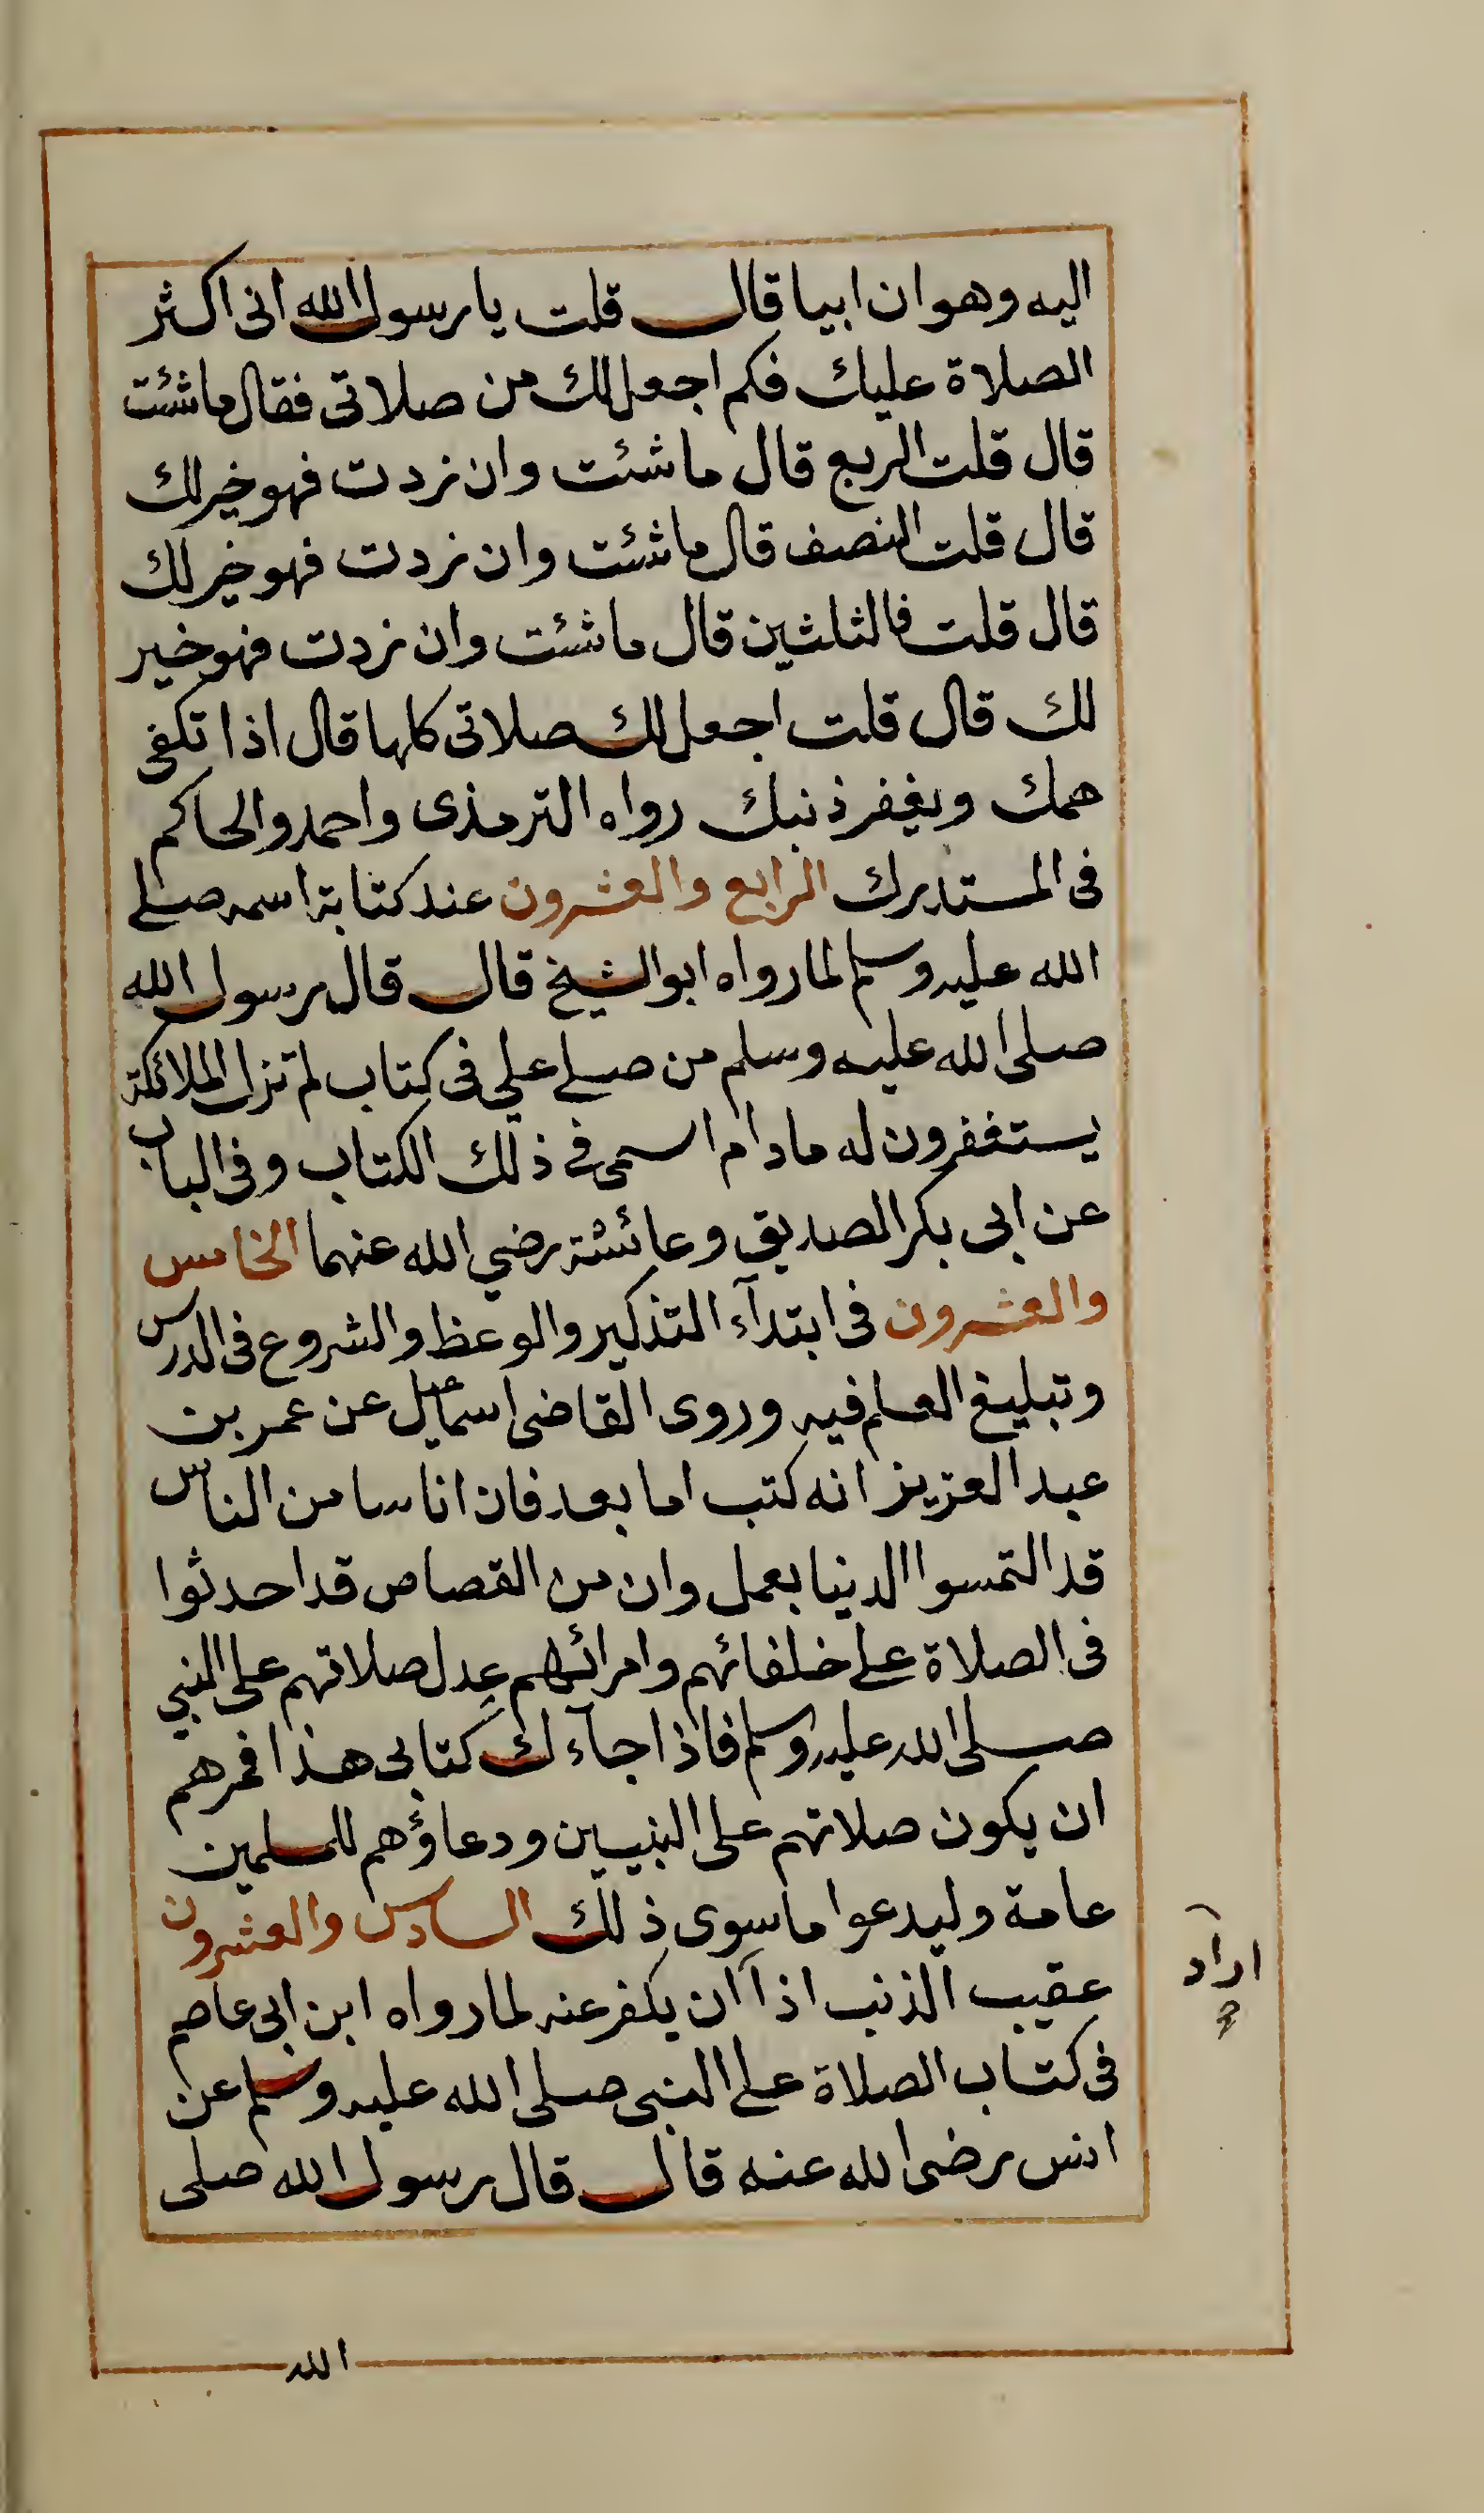 اليه وهو ان ابيا قال قلت يا رسول الله انى اكثر
الصلاة عليك فكم اجعل لك من صلاتى فقال ما شئت
قال قلت الربع قال ما شئت وان زدت فهو خير لك
قال قلت النصف قال ما شئت وان زدت فهو خير لك
قال قلت فالثلثين قال ما شئت وان زدت فهو خير
لك قال قلت اجعل لك صلاتى كلها قال اذا تكفى
همك ويغفر ذنبك رواه الترمذى واحمد والحاكم
فى المستدرك الرابع والعشرون عند كتابة اسمه صلى
الله عليه وسلم لما رواه ابو الشيخ قال قال رسول الله
صلى الله عليه وسلم من صلى علي فى كتاب لم تزل الملائكة
يستغفرون له ما دام اسمى فى ذلك الكتاب وفى الباب
عن ابى بكر الصديق وعائشة رضي الله عنهما الخامس
والعشرون فى ابتدآء التذكير والوعظ والشروع فى الدرس
وتبليغ العلم فيه وروى القاضى اسماعيل عن عمر بن
عبد العزيز انه كتب اما بعد فان اناسا من الناس
قد التمسوا الدنيا بعمل وان من القصاص قد احدثوا
فى الصلاة على خلفائهم وامرائهم عدل صلاتهم على النبي
صلى الله عليه وسلم فاذا جآءك كتابى هذا فمرهم
ان يكون صلاتهم على النبيين ودعاؤهم للمسلمين
عامة وليدعوا ما سوى ذلك السادس والعشرون
عقيب الذنب اذا ان يكفر عنه لما رواه ابن ابى عاصم
اراد
فى كتاب الصلاة على النبى صلى الله عليه وسلم عن
انس رضى الله عنه قال قال رسول الله صلى
الله